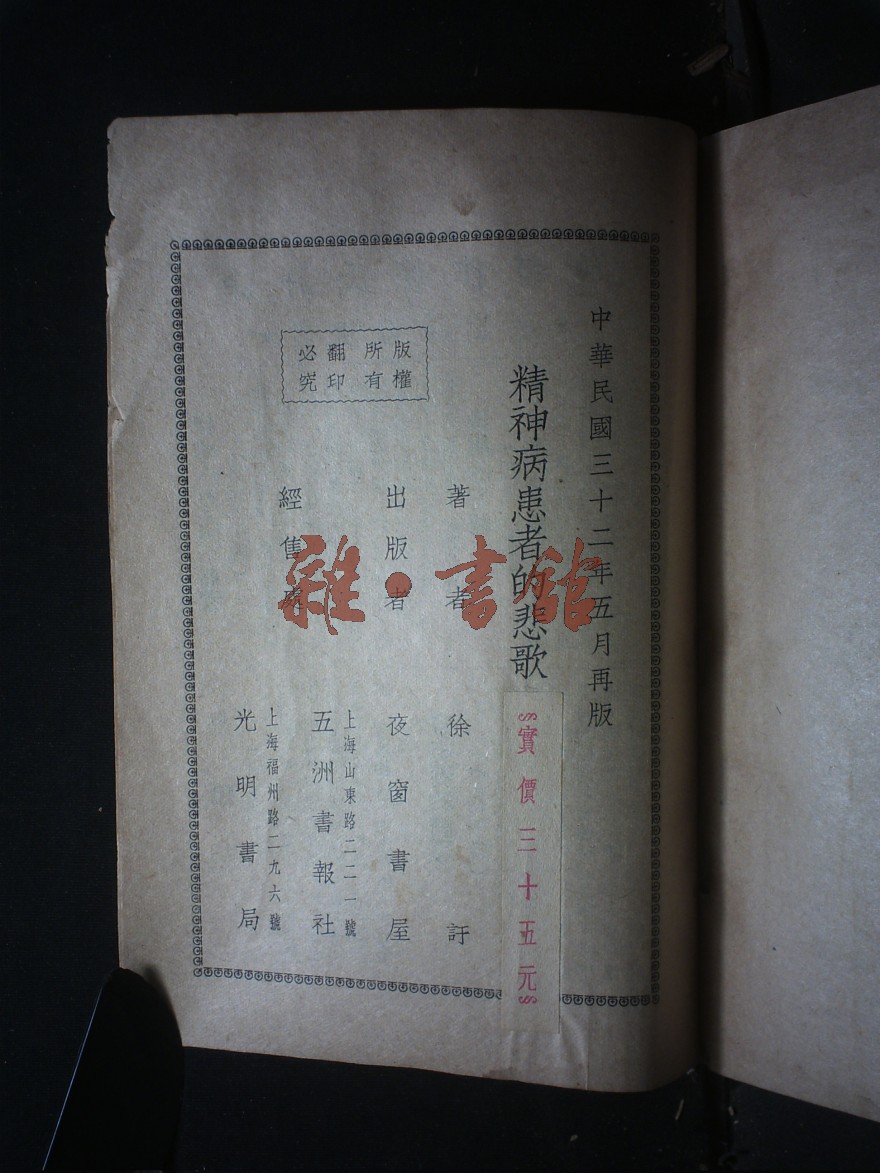 中華民國三十二年五月再版
精神病患者的悲歌
實價三十五元
著者 徐訏
出版者 夜窗書屋
上海山東路二二一號
經售處 五洲書報社
上海福州路二九六號
光明書局
版權所有
翻印必究
雜·書館